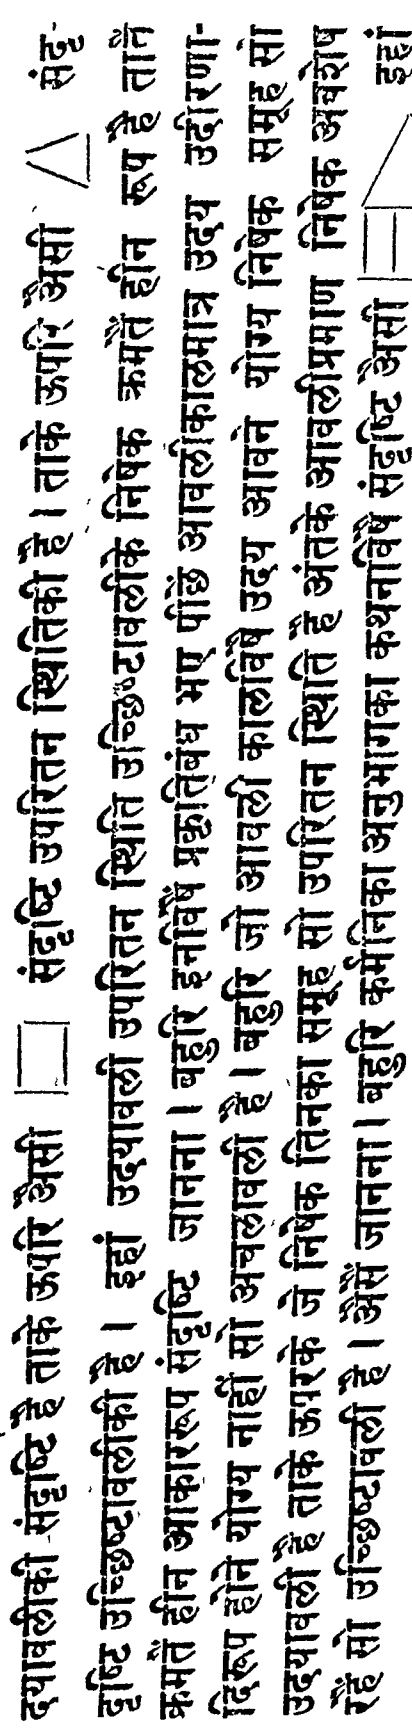 दयावलीकी संदृष्टि है ताके ऊपरि अैसी संदृष्टि उपरितन स्थितिकी है । ताके ऊपरि अैसी संदृ-
दृष्टि उच्छिष्टावलीकी है । इहां उदयावली उपरितन स्थिति उच्छिष्टावलीके निषेक क्रमतैं हीन रूप है तातैं
क्रमतैं हीन आकाररूप संदृष्टि जानना । बहुरि इनविषैं प्रकृतिबंध भए पीछैं आवलीकालमात्र उदय उदीरणा-
दिरूप होने योग्य नाहीं सो अचलावली है । बहुरि जो आवली कालविषैं उदय आवने योग्य निषेक समूह सो
उदयावली है ताके ऊपरके जे निषेक तिनका समूह सो उपरितन स्थिति है अंतके आवलीप्रमाण निषेक अवशेष
रहैं सो उच्छिष्टावली है । अैसैं जानना । बहुरि कर्मनिका अनुभागका कथनविषैं संदृष्टि अैसी इहां